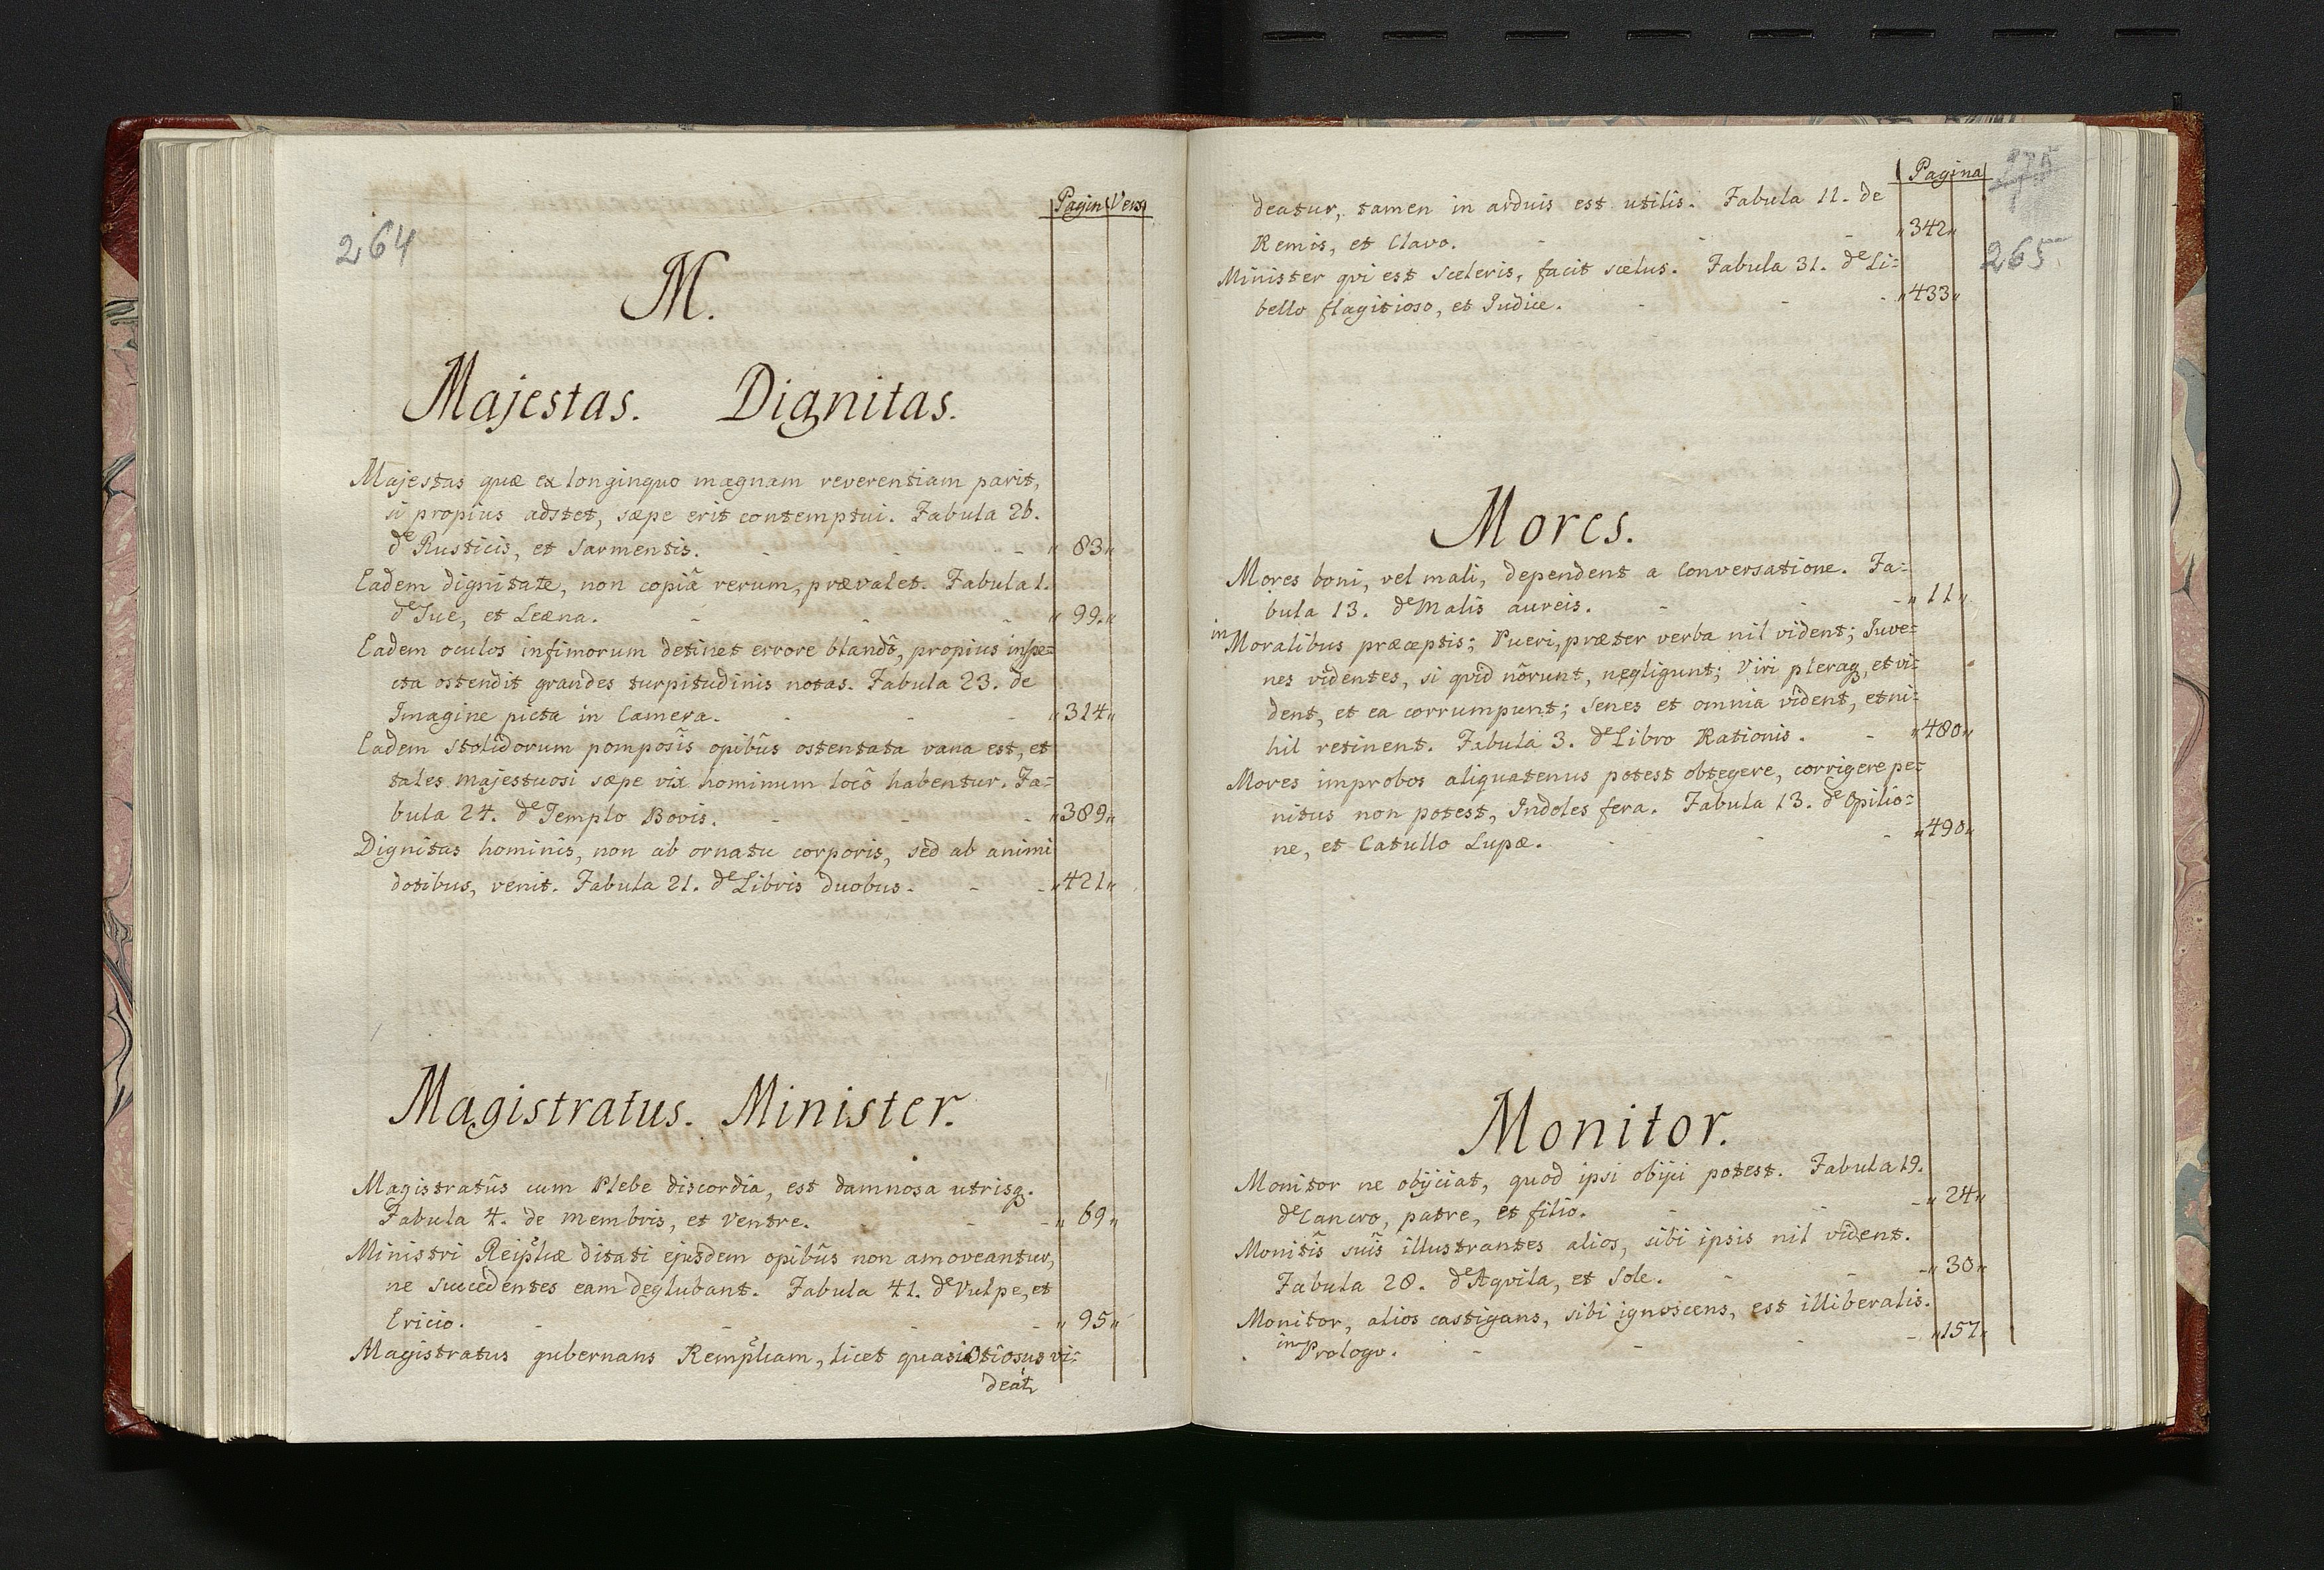 264
Pagin Vers
M.
Majestas. Dignitas.
Majestas quæ ex longinquo magnam reverentiam parit,
si propiùs adstet, sæpe erit contemptui. Fabula 26.
de Rusticis, et Sarmentis. - - - „ 83„
Eadem dignitate, non copiâ rerum, prævalet. Fabula 1.
de Sue, et Leæna. - - - „ 99„
Eadem oculos infimorum detinet errore blandô, propius inspe=
cta ostendit grandes turpitudinis notas. Fabula 23. de
Imagine picta in Camera. - - - „314„
Eadem stolidorum pomposîs opibûs ostentata vana est, et
tales majestuosi sæpe vix hominum locô habentur. Fa=
bula 24. de Templo Bovis. - - - „389„
Dignitas hominis, non ab ornatu corporis, sed ab animi
dotibus, venit. Fabula 21. de Libris duobus. - - „421„
Magistratus. Minister.
Magistratûs cum Plebe discordia, est damnosa utrisq.
Fabula 4. de membris, et Ventre. - - - „ 69„
Ministri Reipłicæ ditati ejusdem opibûs non amoveantur,
ne succedentes eam deglubant. Fabula 41. de Vulpe, et
Ericio. - - - - „ 95„
Magistratus gubernans Rempłicam, licet quasi otiosus vi=
deat,
Pagina
275
265
deatur, tamen in arduis est utilis. Fabula 11. de
Remis, et Clavo. - - - „342„
Minister qvi est sceleris, facit scelus. Fabula 31. de Li=
bello flagitioso, et Judice. - - - „433„
Mores.
Mores boni, vel mali, dependent a Conversatione. Fa=
bula 13. de Malis aureis. - - - „ 11„
in Moralibus præceptis; Pueri, præter verba nil vident; Juve=
nes videntes, si qvid nôrunt, negligunt; Viri pleraq, et vi=
dent, et ea corrumpunt; Senes et omnia vident, et ni=
hil retinent. Fabula 3. de Libro Rationis. - „480„
Mores improbos aliquatenus potest obtegere, corrigere pe=
nitus non potest, Indoles fera. Fabula 13. de Opilio=
ne, et Catullo Lupæ. - - „490„
Monitor.
Monitor ne objiciat, quod ipsi obijci potest. Fabula 19.
de Cancro, patre, et filio. - - - „ 24„
Monitîs suîs illustrantes alios, sibi ipsis nil vident.
Fabula 28. de Aqvila, et Sole. - - - „ 30„
Monitor, alios castigans, sibi ignoscens, est illiberalis.
in Prologo. - - - - „157„